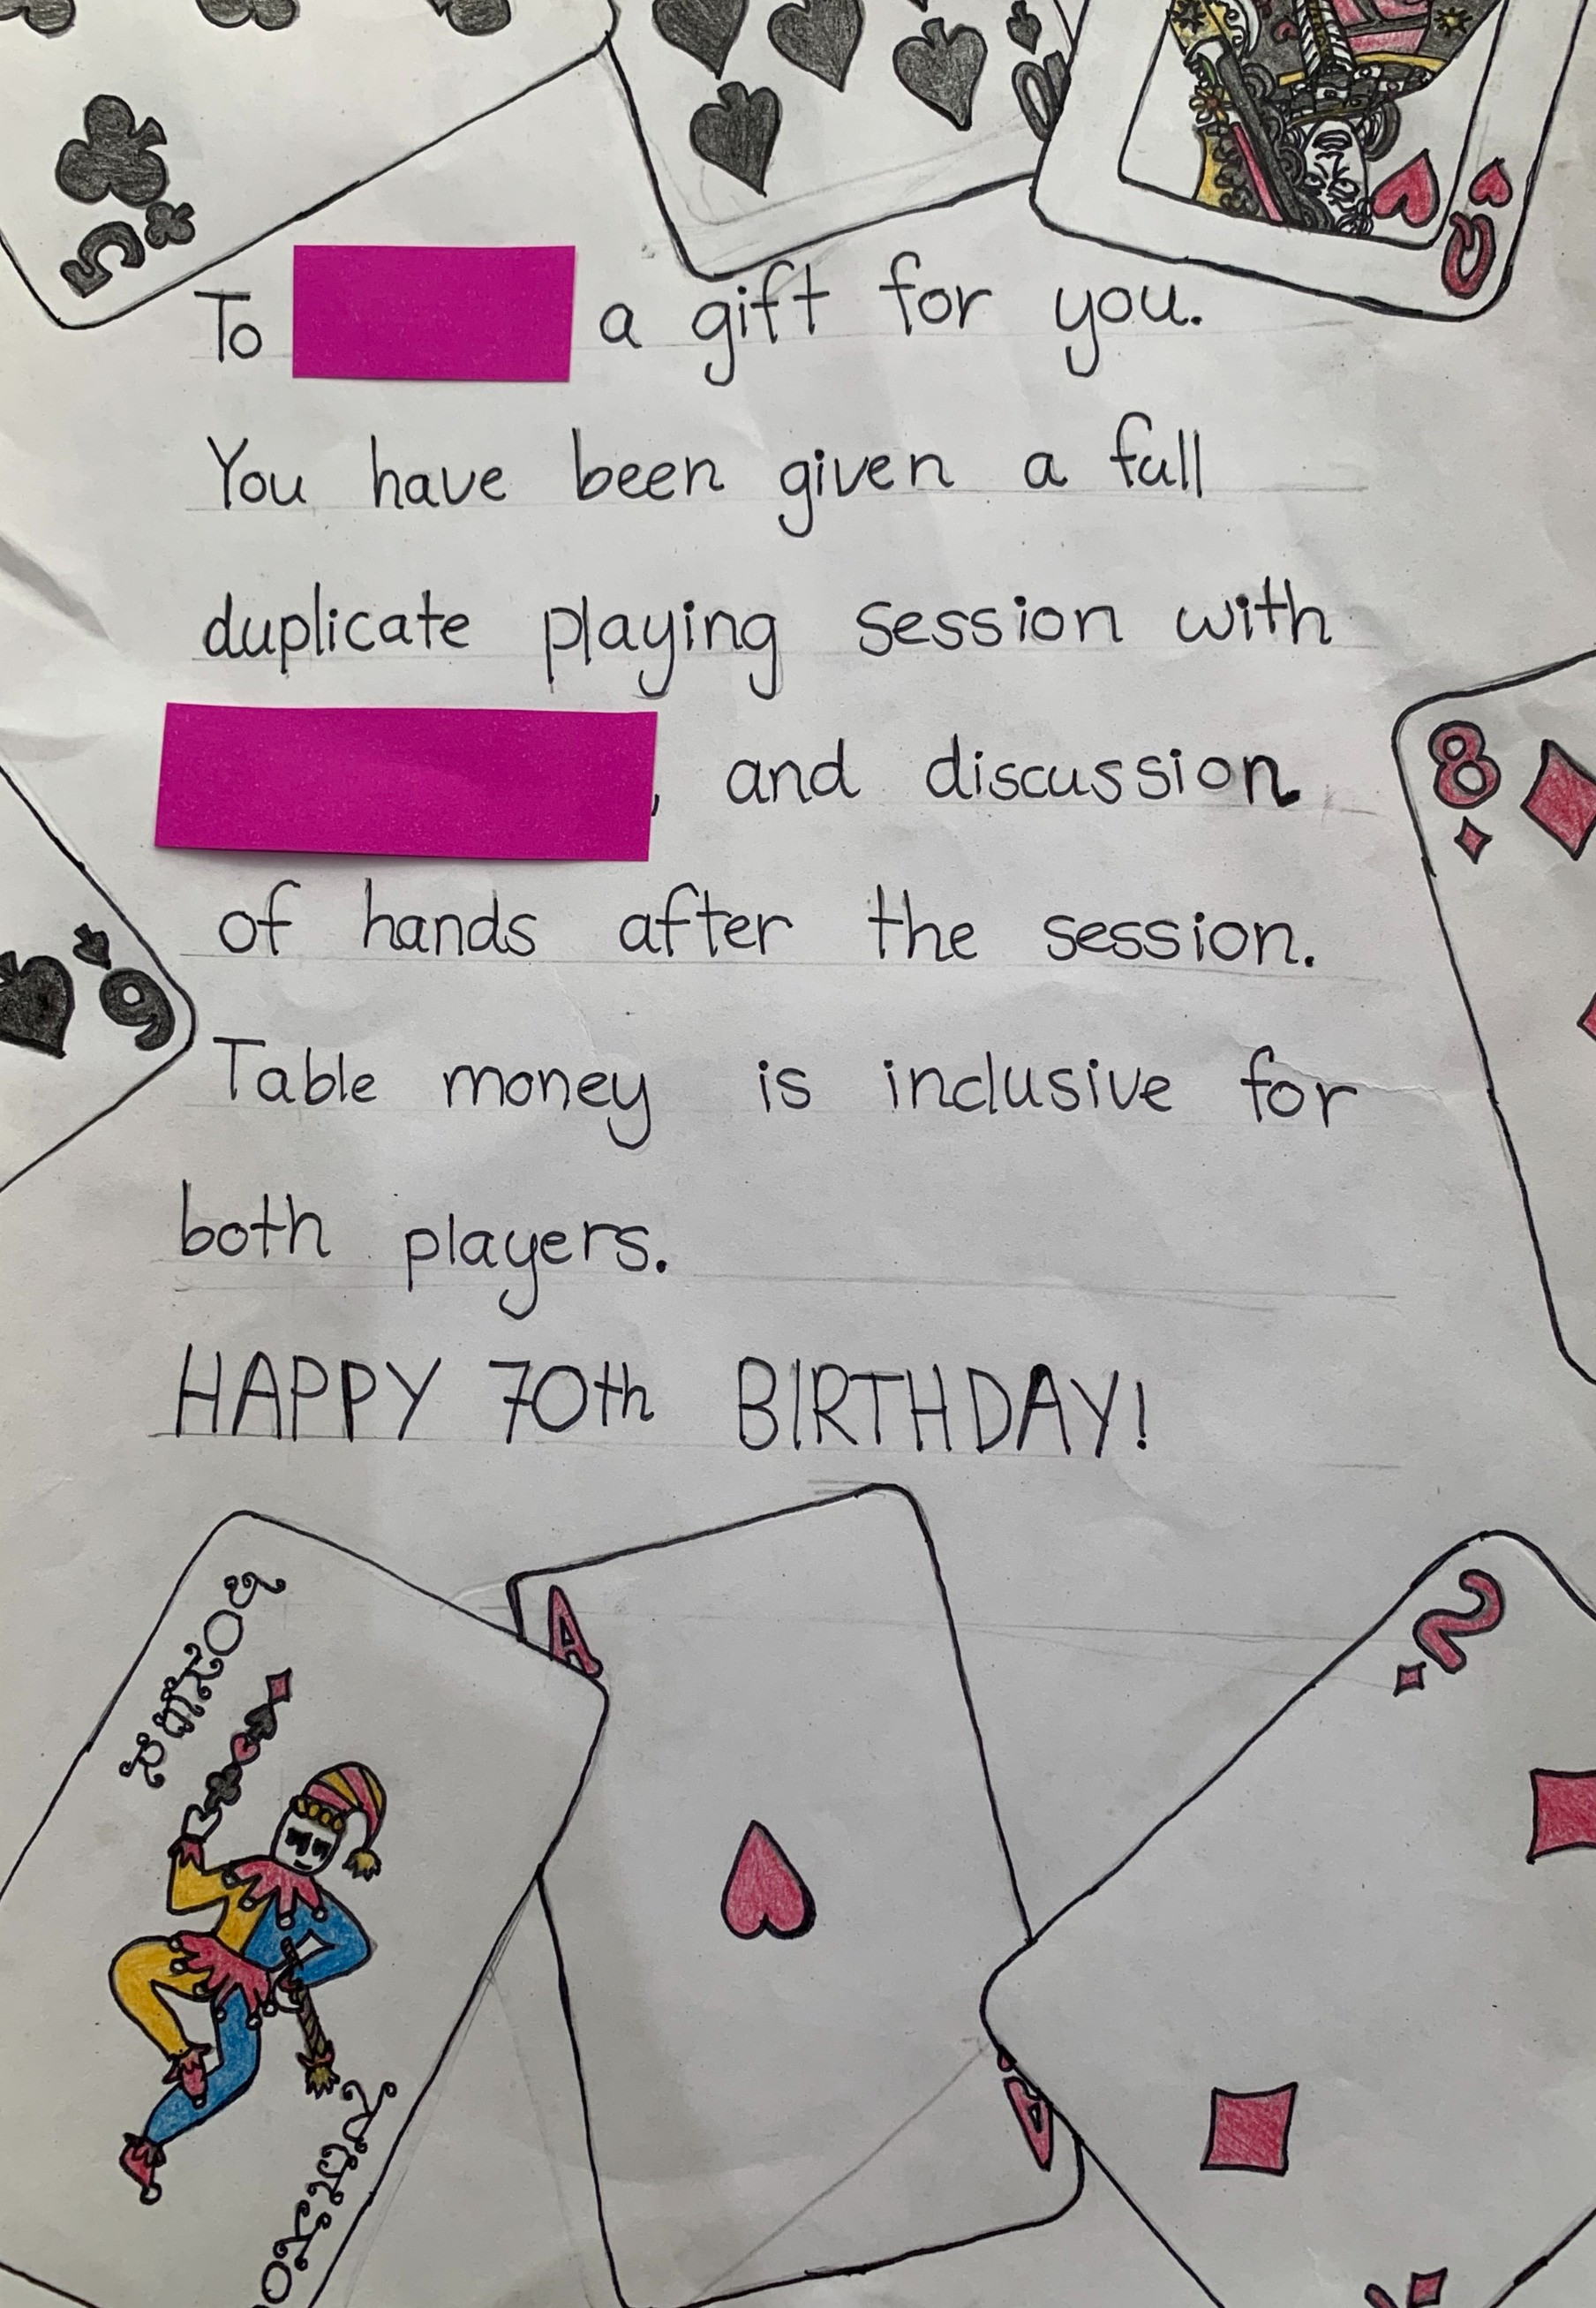 5
10
Q
To a gift for you.
You have been given a full
duplicate playing session with
, and discussion
of hands after the session.
Table money is inclusive for
both players.
HAPPY 70th BIRTHDAY!
8
9
JOKER
JOKER
A
A
2